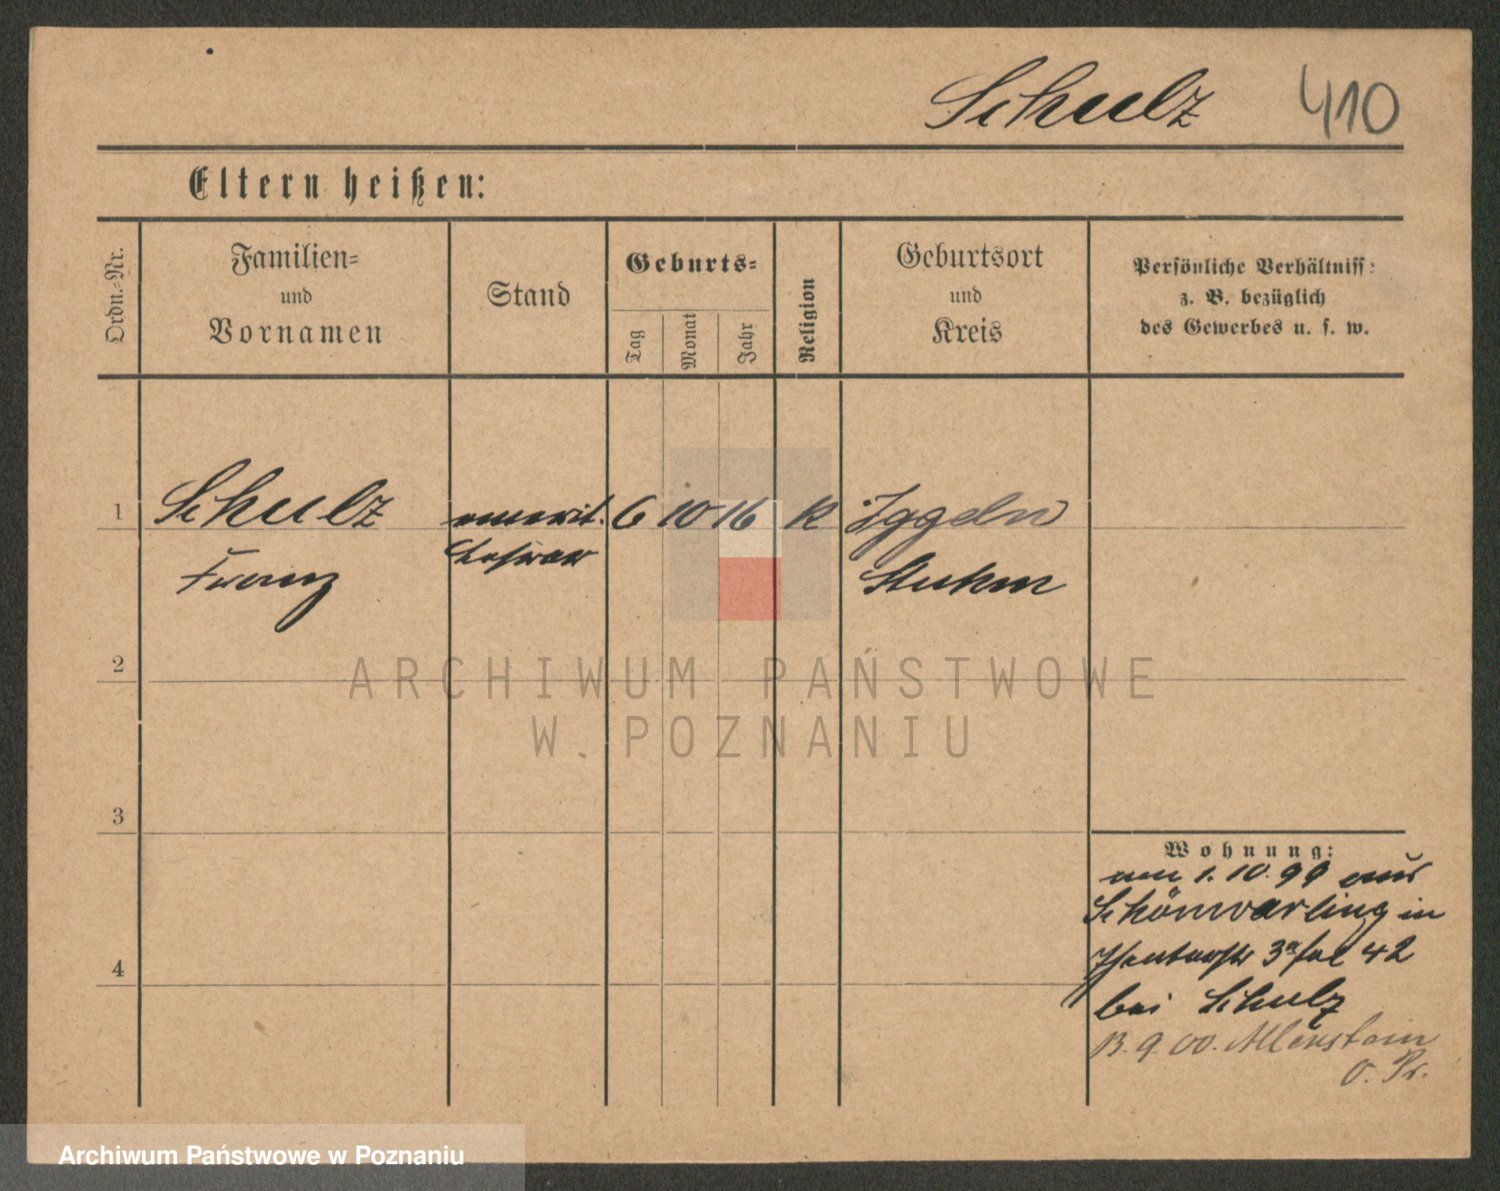 Schulz 410
Eltern heißen:
Ordn.-Nr.
Familien-
und
Vornamen
Stand
Geburts-
Tag
Monat
Jahr
Religion
Geburtsort
und
Kreis
Persönliche Verhältniss:
z. B. bezüglich
des Gewerbes u. s. w.
1 Schulz emerit. 6 10 16 K Iggeln
Franz Lehrer Stuhm
2
ARCHIWUM PAŃSTWOWE
W POZNANIU
3
4
Wohnung:
am 1.10.99 aus
Schönwarling in
42
bei Schulz
13.9.00. Allenstein
O. Pr.
Archiwum Państwowe w Poznaniu